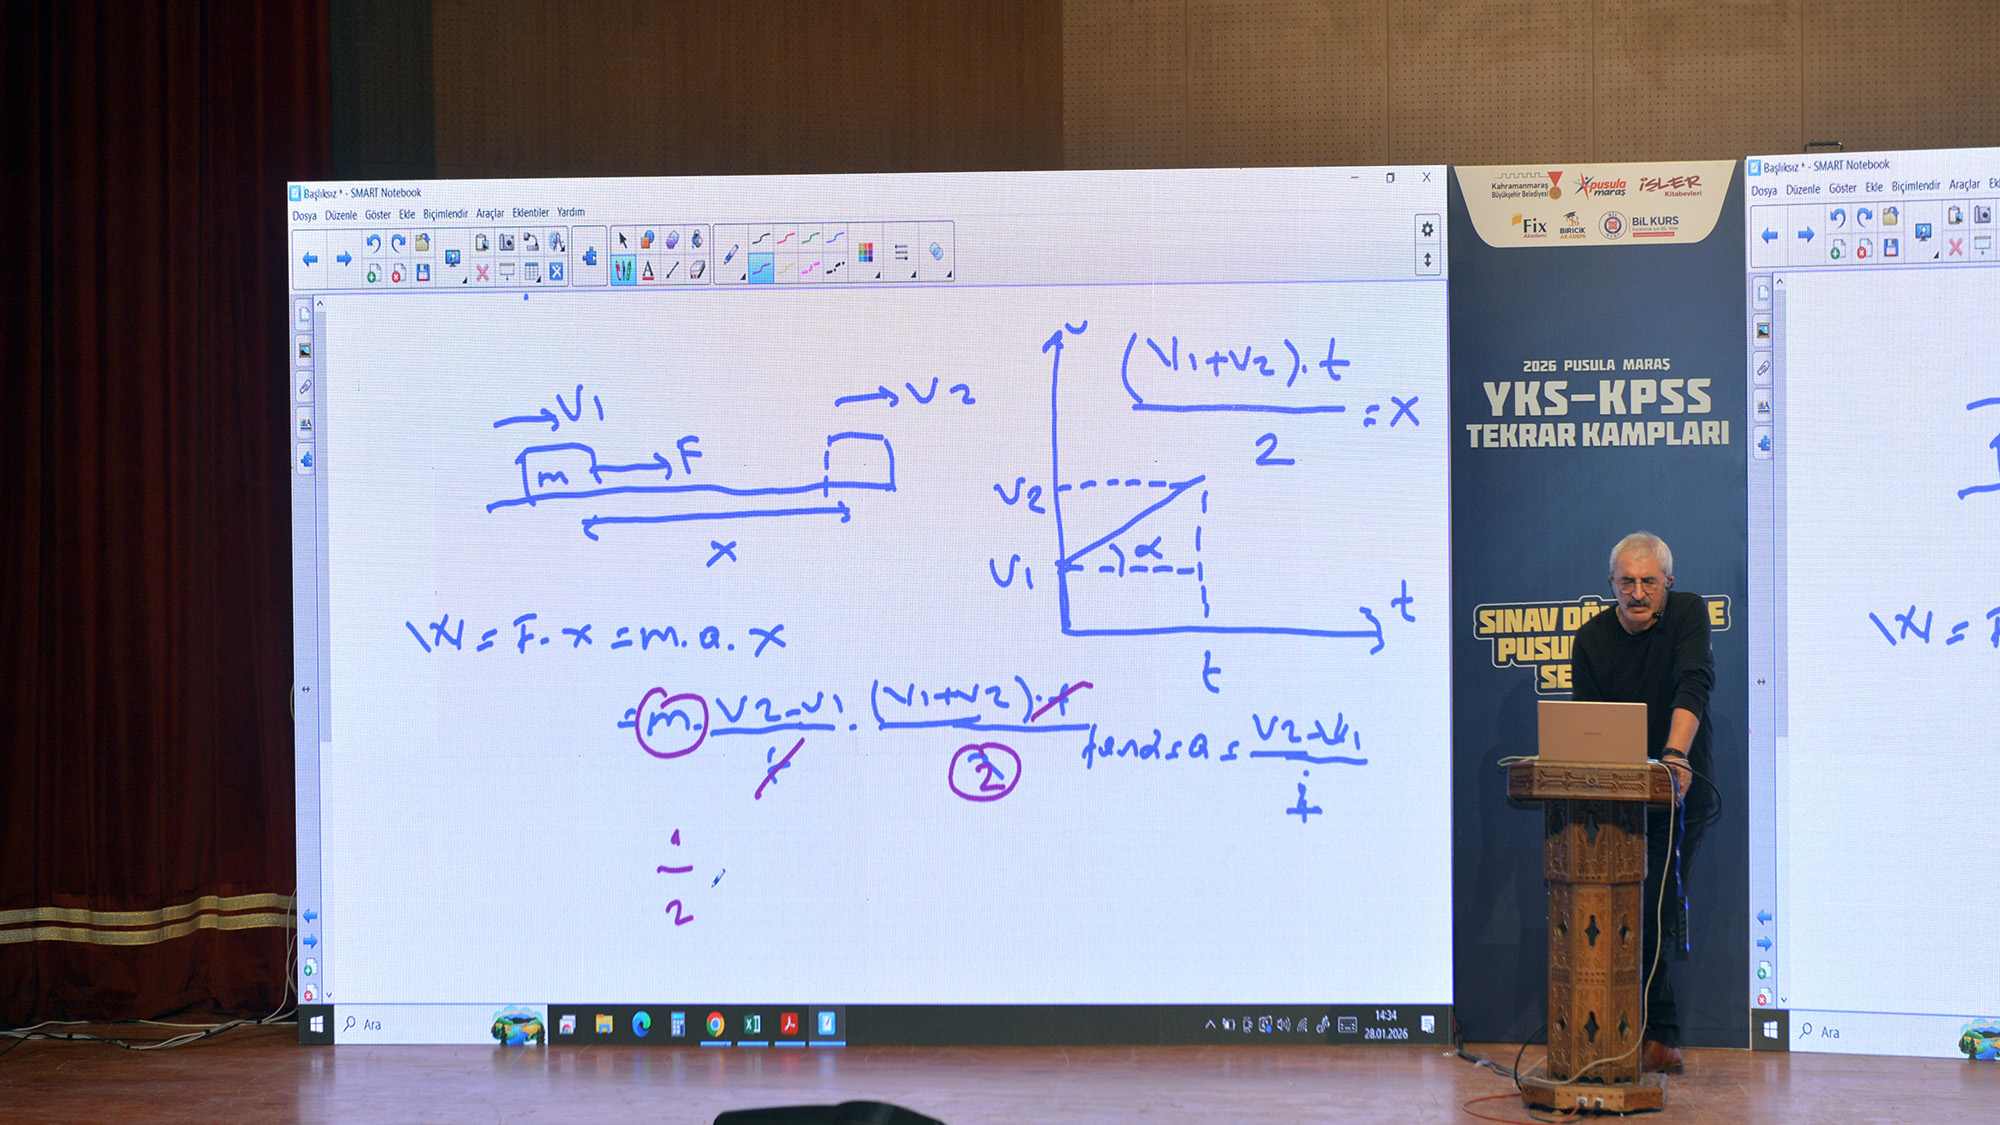 Başlıksız * - SMART Notebook
Dosya Düzenle Göster Ekle Biçimlendir Araçlar Eklentiler Yardım
V1
V2
m
F
x
v
(V1+V2).t
2
=x
V2
V1
α
t
t
W = F. x = m.a. x
= m. V2-V1 . (V1+V2).t
t
2
tanα = a = V2-V1
t
1
2
Ara
14:34
28.01.2026
Kahramanmaraş
Büyükşehir Belediyesi
pusula
maraş
İŞLER
Kitabevleri
Fix
Akademi
BİRİCİK
AKADEMİ
BİL KURS
2026 PUSULA MARAŞ
YKS-KPSS
TEKRAR KAMPLARI
SINAV DÖ
E
PUSU
SE
Başlıksız * - SMART Notebook
Dosya Düzenle Göster Ekle Biçimlendir Araçlar Ek
W = F
Ara